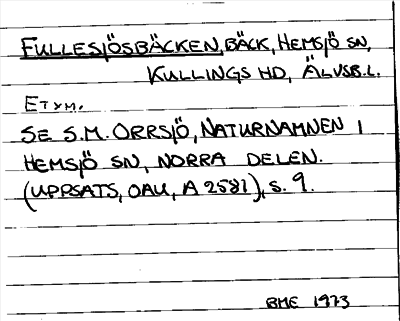 FULLESJÖSBÄCKEN, BÄCK, HEMSJÖ SN,
KULLINGS HD, ÄLVSB. L.
ETYM.
SE S.M. ORRSJÖ, NATURNAMNEN I
HEMSJÖ SN, NORRA DELEN.
(UPPSATS, OAU, A 2581), S. 9.
BME 1973